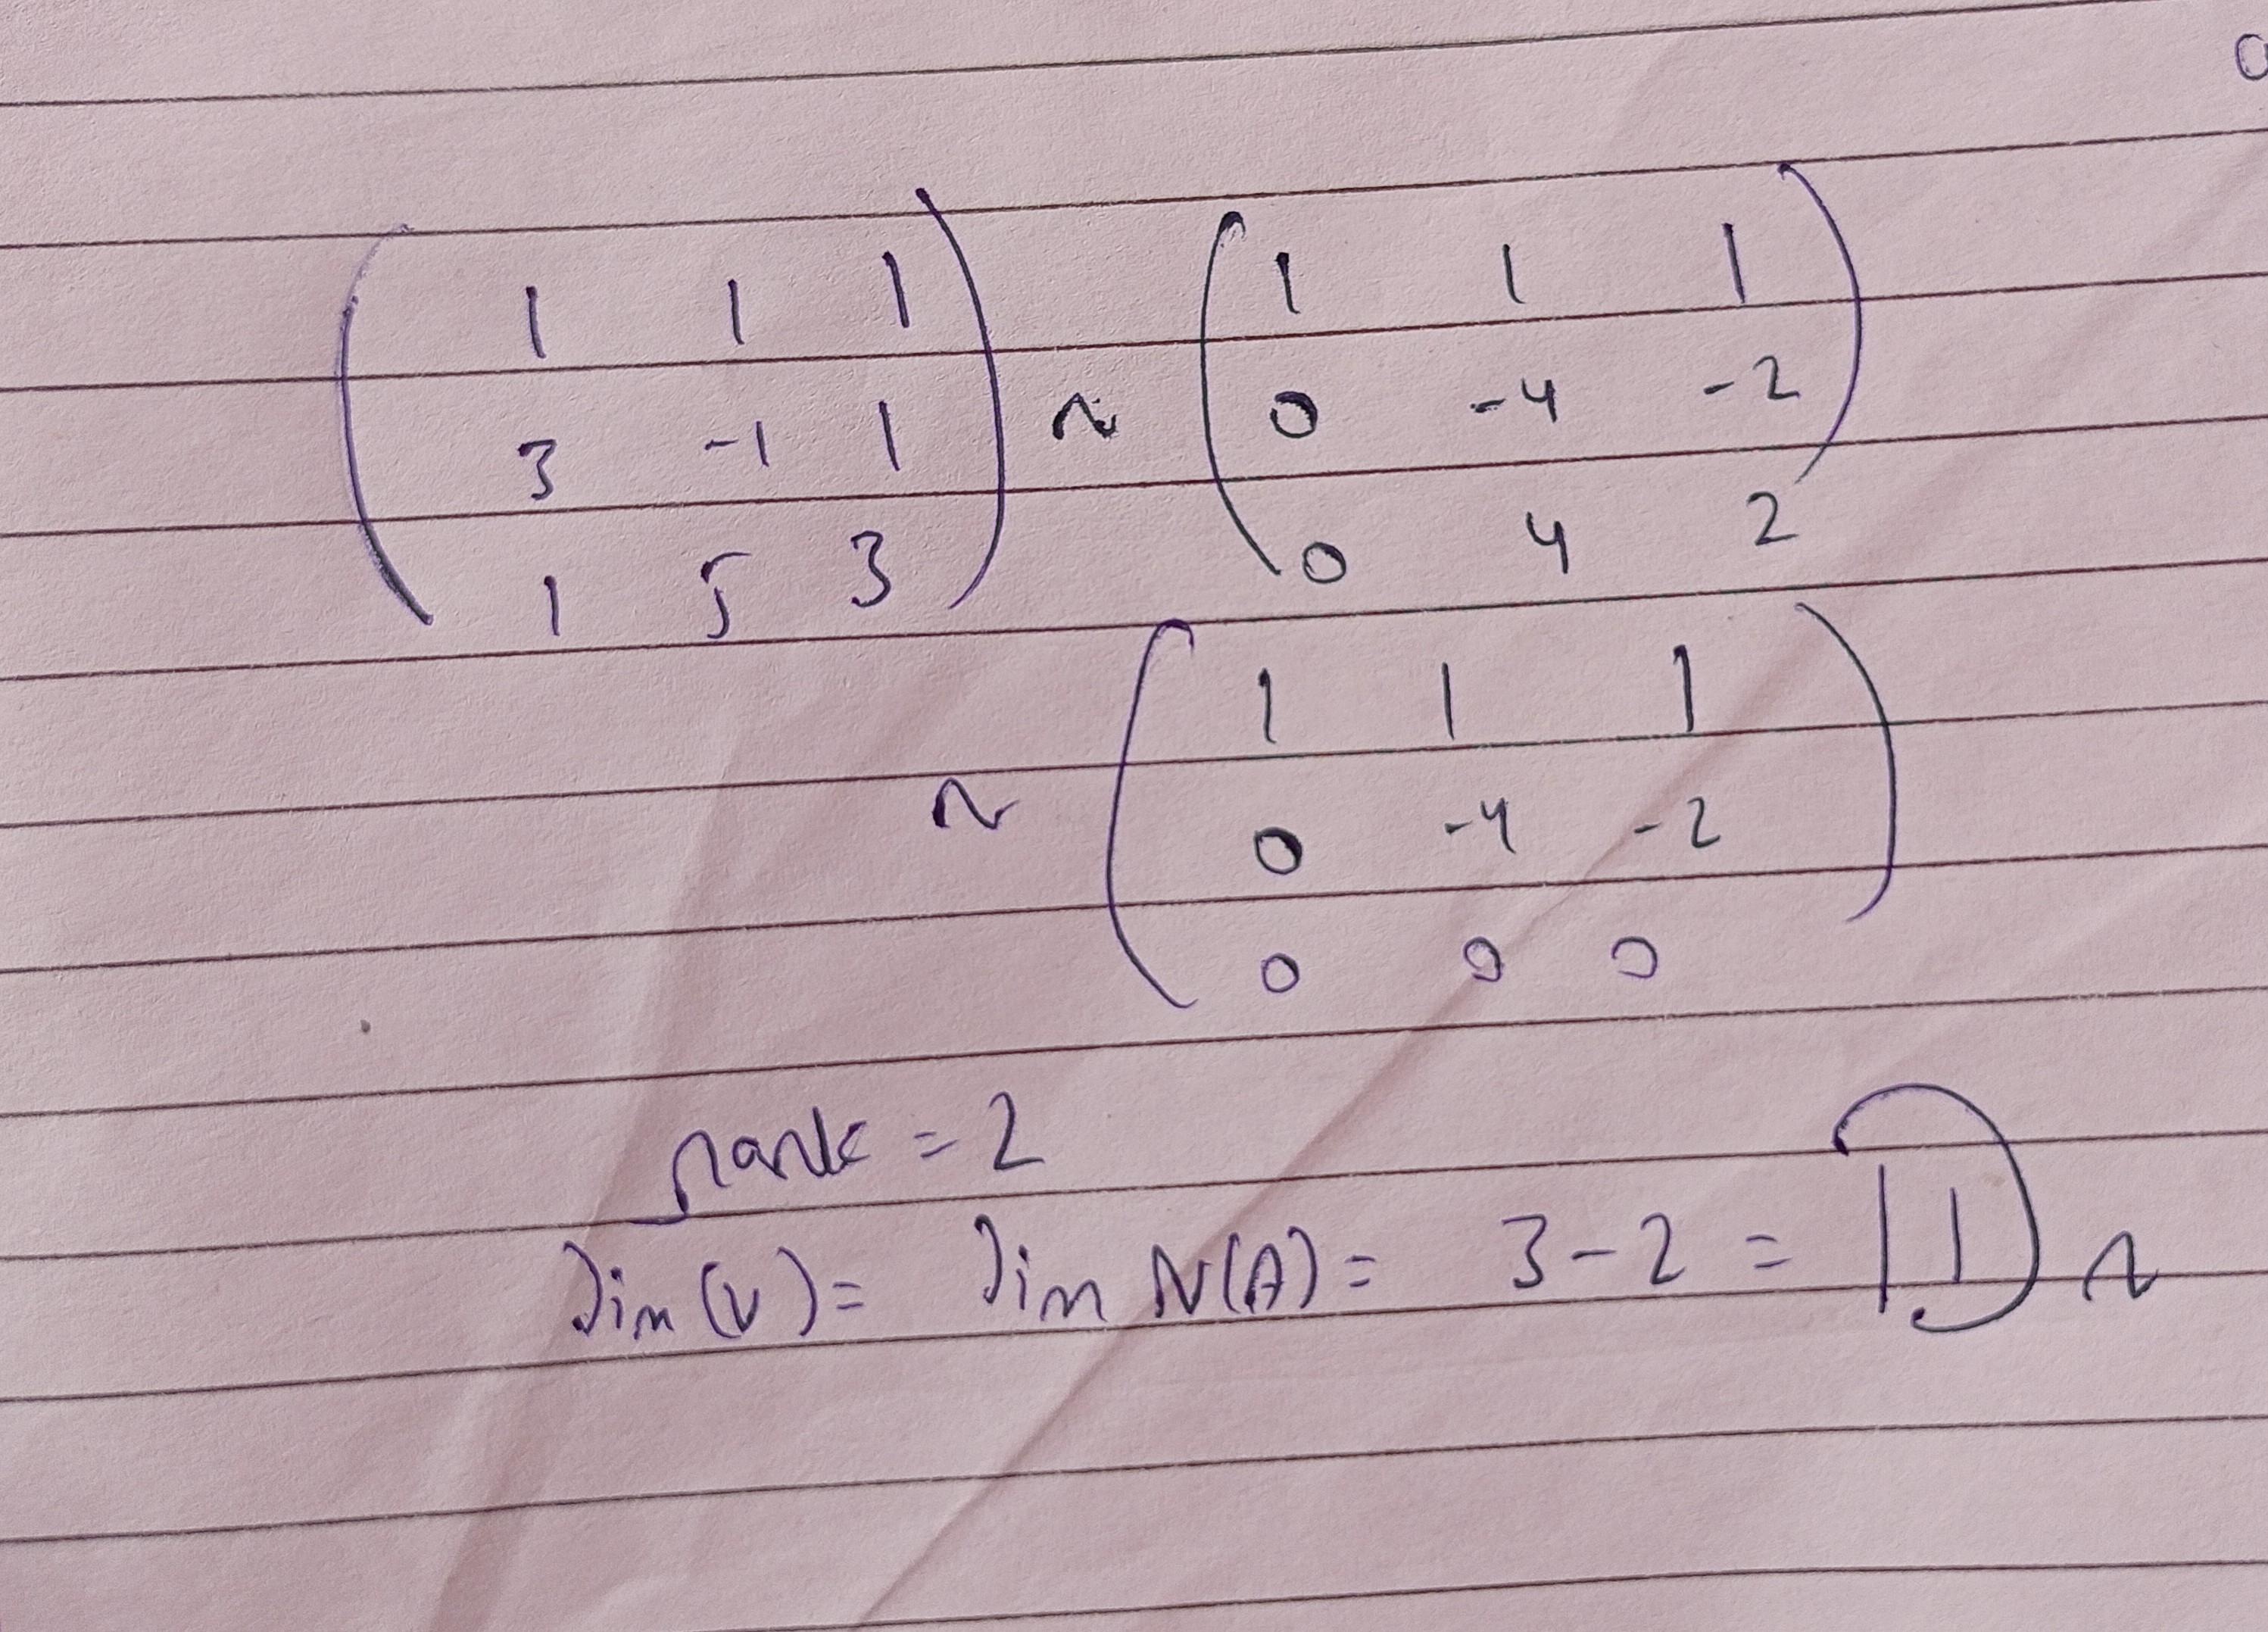 ( 1 1 1 ) ~ ( 1 1 1 )
( 3 -1 1 ) ( 0 -4 -2 )
( 1 5 3 ) ( 0 4 2 )
~ ( 1 1 1 )
( 0 -4 -2 )
( 0 0 0 )
rank = 2
Dim (V) = Dim N(A) = 3 - 2 =